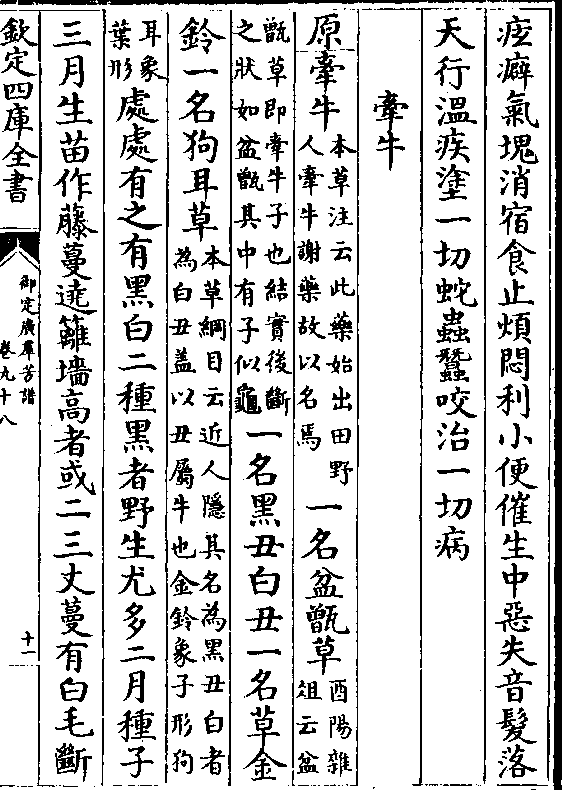 痃癖氣塊消宿食止煩悶利小便催生中惡失音髮落
天行溫疾塗一切蛇蟲蠶咬治一切病
牽牛
原牽牛本草注云此藥始出田野人牽牛謝藥故以名焉一名盆甑草酉陽雜俎云盆
甑草即牽牛子也結實後斷之狀如盆甑其中有子似龜一名黑丑白丑一名草金
鈴一名狗耳草本草綱目云近人隱其名為黑丑白者為白丑盖以丑屬牛也金鈴象子形狗
耳象葉形處處有之有黑白二種黑者野生尤多二月種子
三月生苗作藤蔓遶籬墻高者或二三丈蔓有白毛斷
欽定四庫全書
御定廣羣芳譜
卷九十八
十一